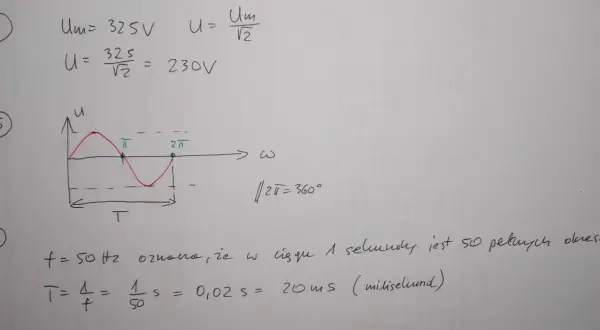 Um = 325V U = Um/√2
U = 325/√2 = 230V
u
π 2π
ω
// 2π = 360°
T
f = 50 Hz oznacza, że w ciągu 1 sekundy jest 50 pełnych okres
T = 1/f = 1/50 s = 0,02 s = 20 ms (milisekund)